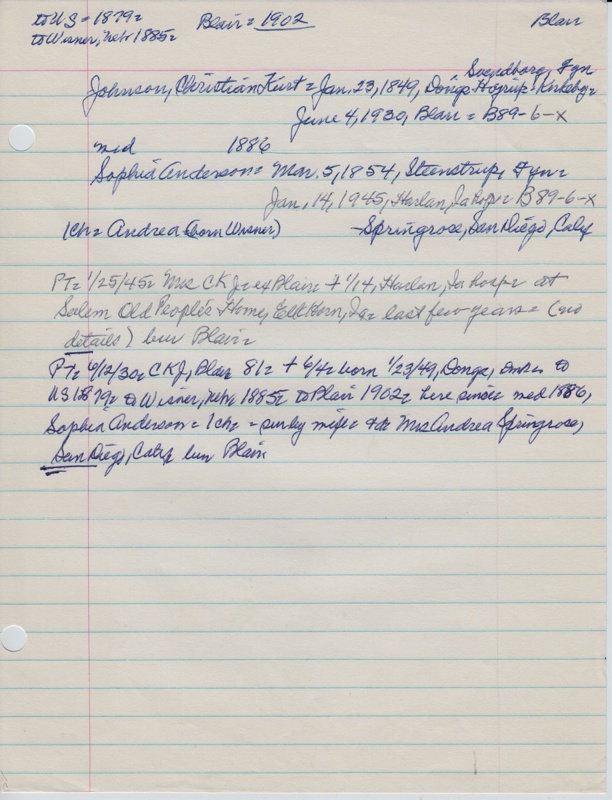 to US = 1879= Blair = 1902 Blair
to Wisner, Neb 1885=
Svendborg, Fyn
Johnson, Christian Kurt = Jan. 23, 1849, Donge Højrup Kirkeby =
June 4, 1930, Blair = B89-6-x
med 1886
Sophia Anderson = Mar. 5, 1854, Steenstrup, Fyn =
Jan, 14, 1945, Harlan, Ia hosp = B89-6-x
1ch = Andrea (born Wisner) - Springrose, San Diego, Calif
PT = 1/25/45 = Mrs CKJ = ex Blair = + 1/14, Harlan, Ia hosp = at
Salem Old People's Home, Elk Horn, Ia = last few years = (no
details) bur Blair =
PT = 6/12/30 = CKJ, Blair 81 = + 6/4 = born 1/23/49, Donge, to
US 1879 = to Wisner, Neb 1885 = to Blair 1902 = here since = med 1886,
Sophia Anderson = 1ch = = surv by wife = + da Mrs Andrea Springrose,
San Diego, Calif bur Blair